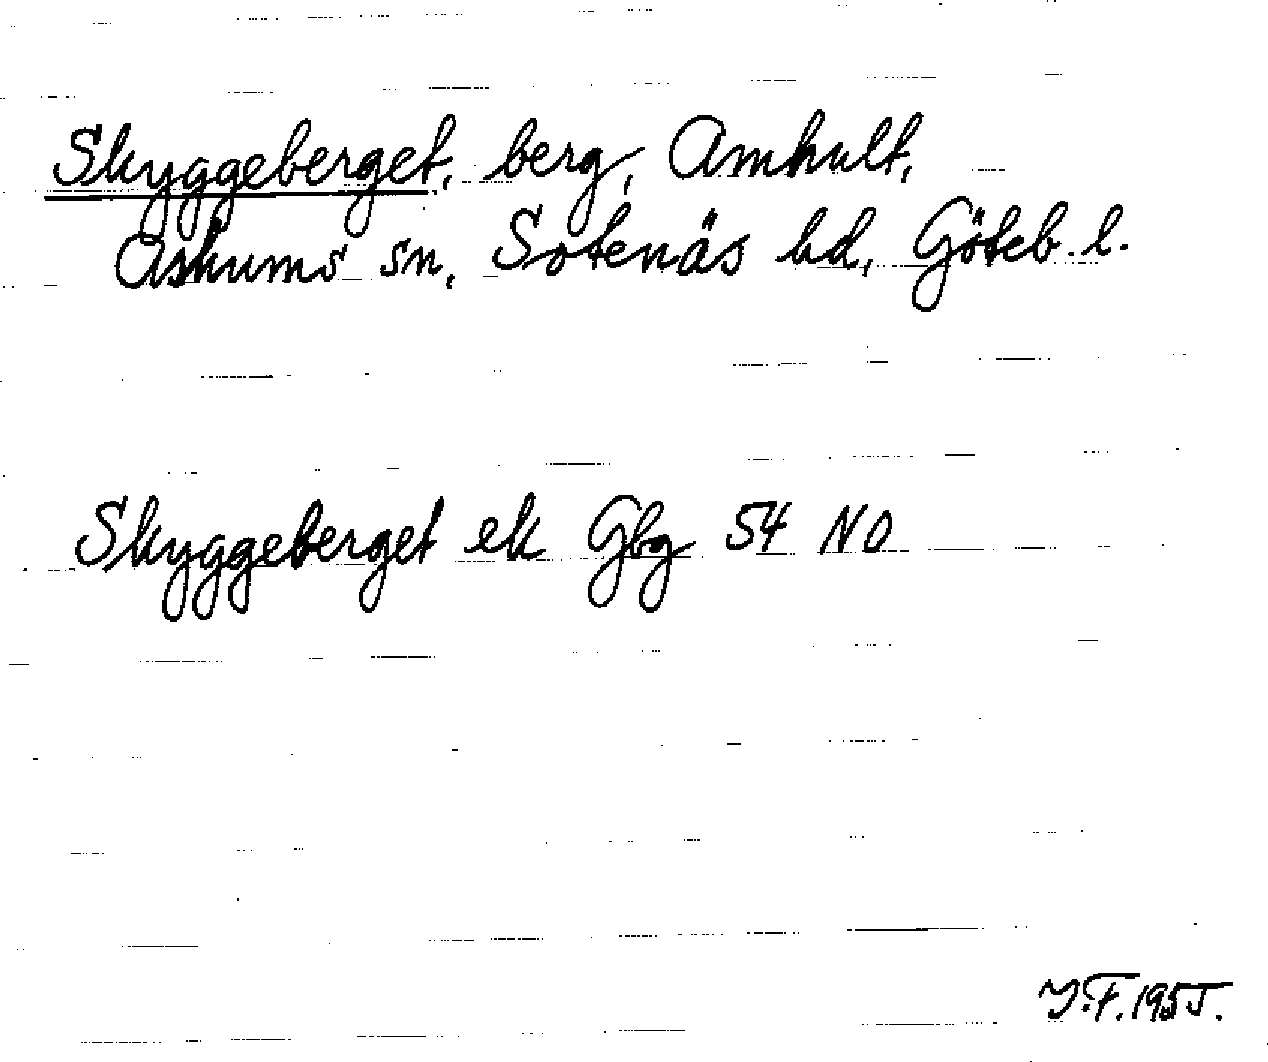 Skyggeberget, berg, Amhult,
Askums sn, Sotenäs hd, Göteb. l.
Skyggeberget ek Gbg 54 NO
Y.F. 1955.